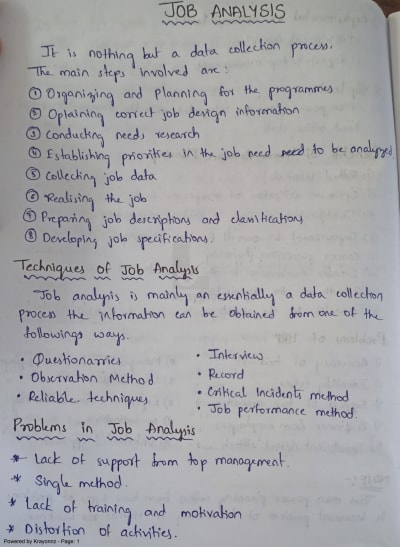 JOB ANALYSIS
It is nothing but a data collection process.
The main steps involved are :
① Organizing and planning for the programmes
② Optaining correct job design information
③ Conducting needs research
④ Establishing priorities in the job need need to be analyzed.
⑤ Collecting job data
⑥ Realising the job
⑦ Preparing job descriptions and classifications
⑧ Developing job specifications.
Techniques of Job Analysis
Job analysis is mainly an essentially a data collection
process the information can be obtained from one of the
followings ways.
• Questionarries
• Observation Method
• Reliable techniques
• Interview
• Record
• Critical Incidents method
• Job performance method.
Problems in Job Analysis
* Lack of support from top management.
* Single method.
* Lack of training and motivation
* Distortion of activities.
Powered by Krayonnz - Page: 1